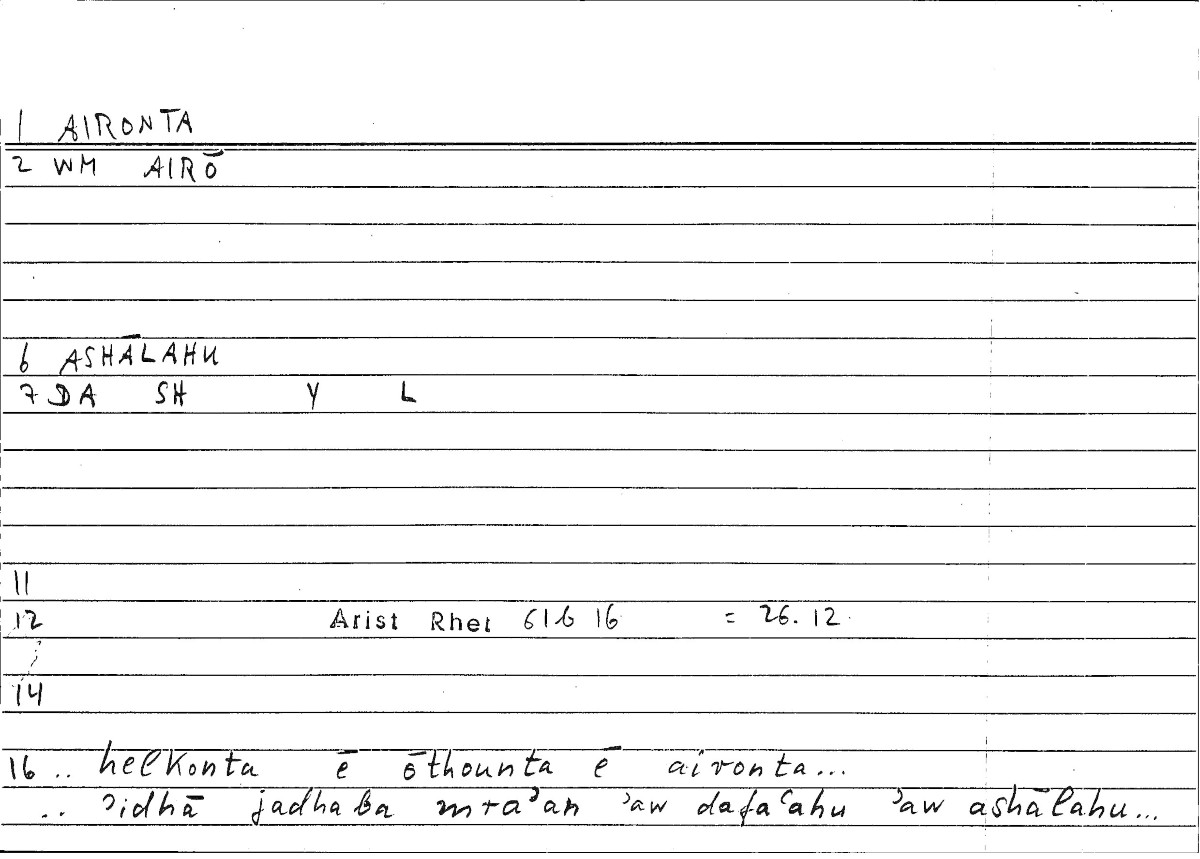 1 AIRONTA
2 WM AIRŌ
6 ASHĀLAHU
7 DA SH Y L
11
12 Arist Rhet 61b 16 = 26.12.
14
16 .. helkonta ē ōthounta ē aironta...
.. ʾidhā jadhaba ʾaw dafaʿahu ʾaw ashālahu...